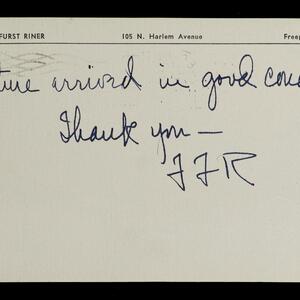 FURST RINER 105 N. Harlem Avenue Freep
ture arrived in good cond
Thank you —
FFR